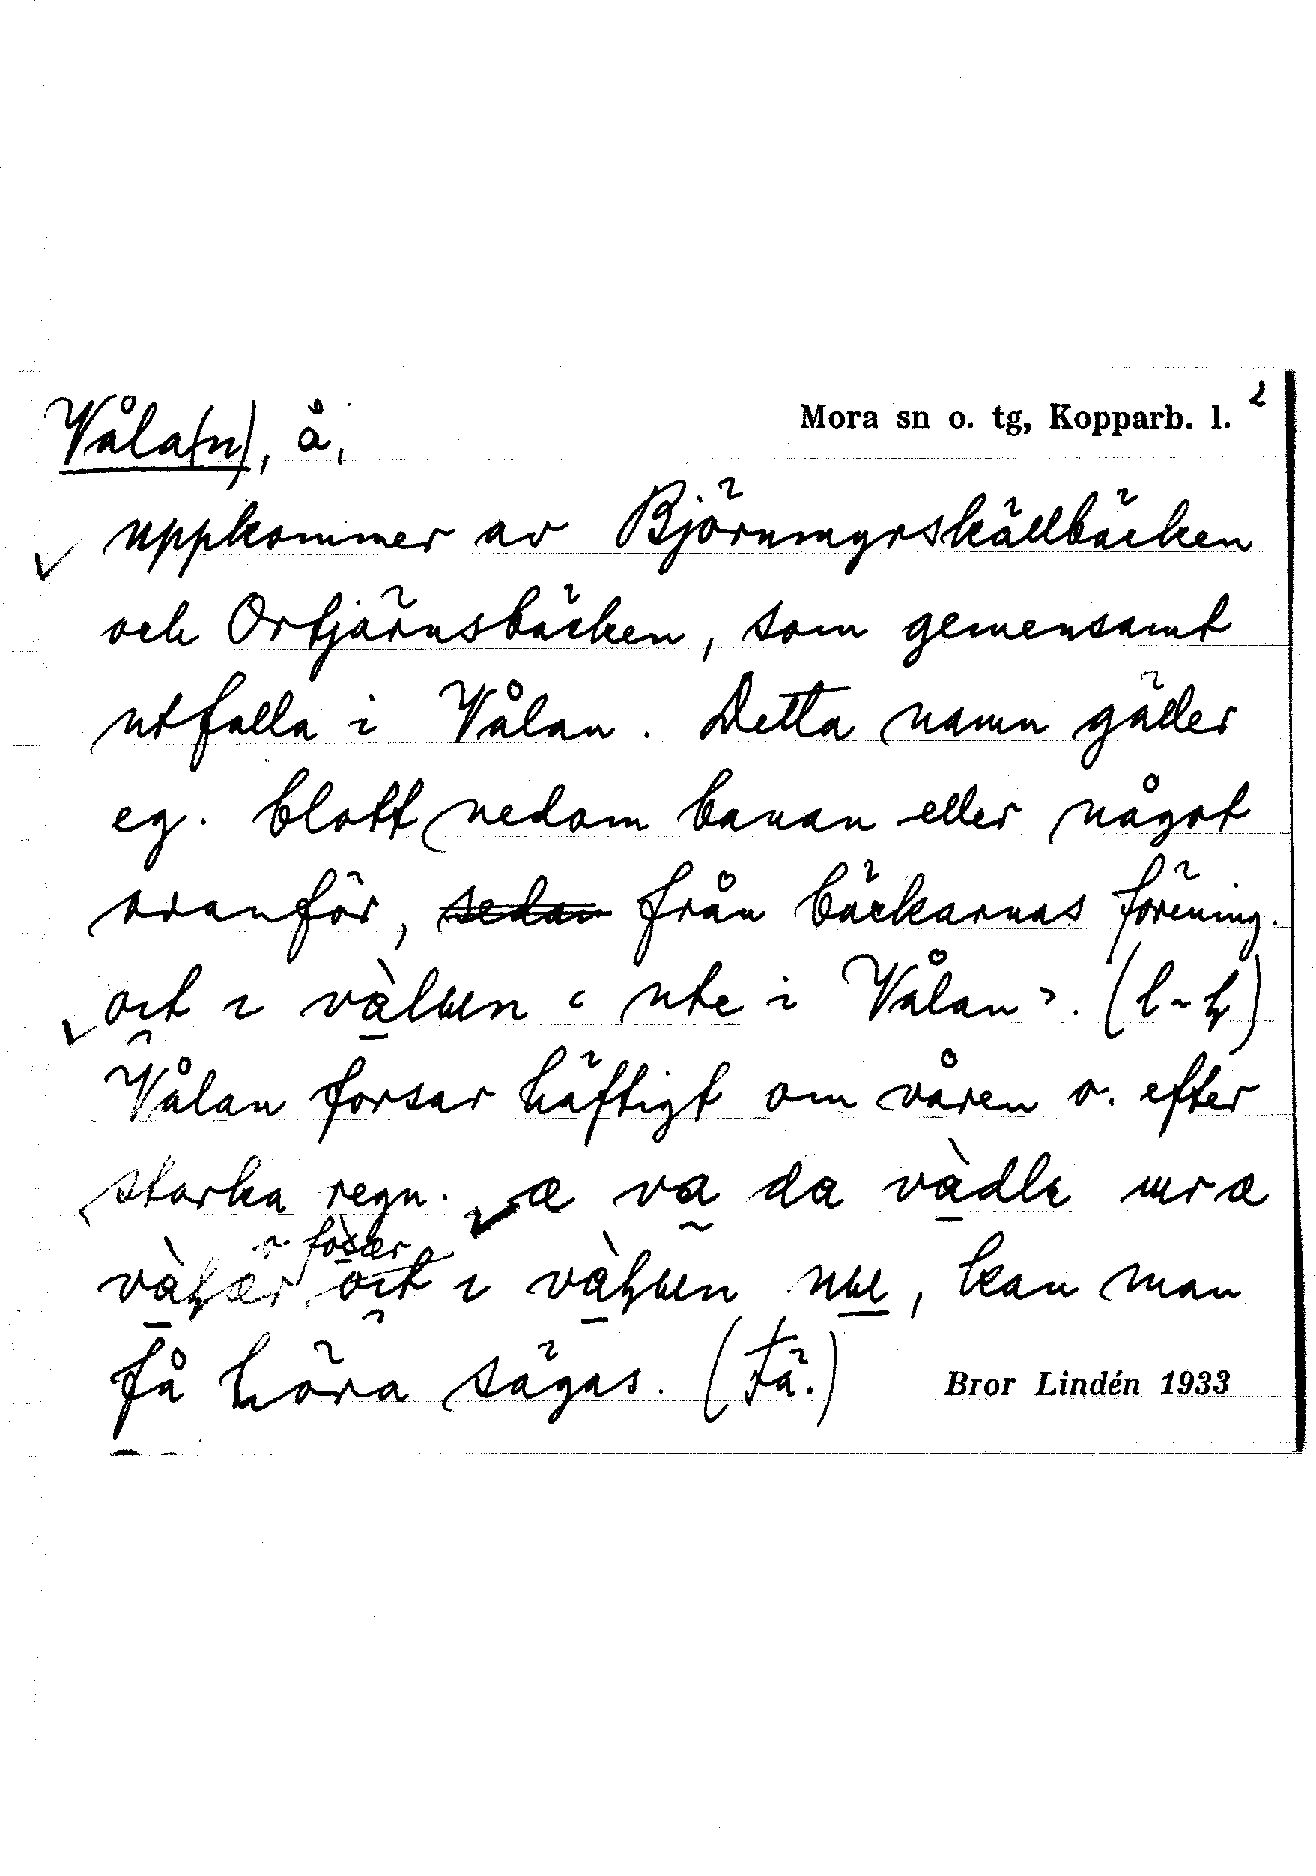 Våla(n), å,
Mora sn o. tg, Kopparb. l. 2
uppkommer av Björnmyrskällbäcken
och Ortjärnsbäcken, som gemensamt
utfalla i Vålan. Detta namn gäller
eg. blott nedom banan eller något
ovanför, från bäckarnas förening.
"ute i Vålan".
Vålan forsar häftigt om våren o. efter
starka regn. æ va da
kan man
få höra sägas. (Fä.)
Bror Lindén 1933